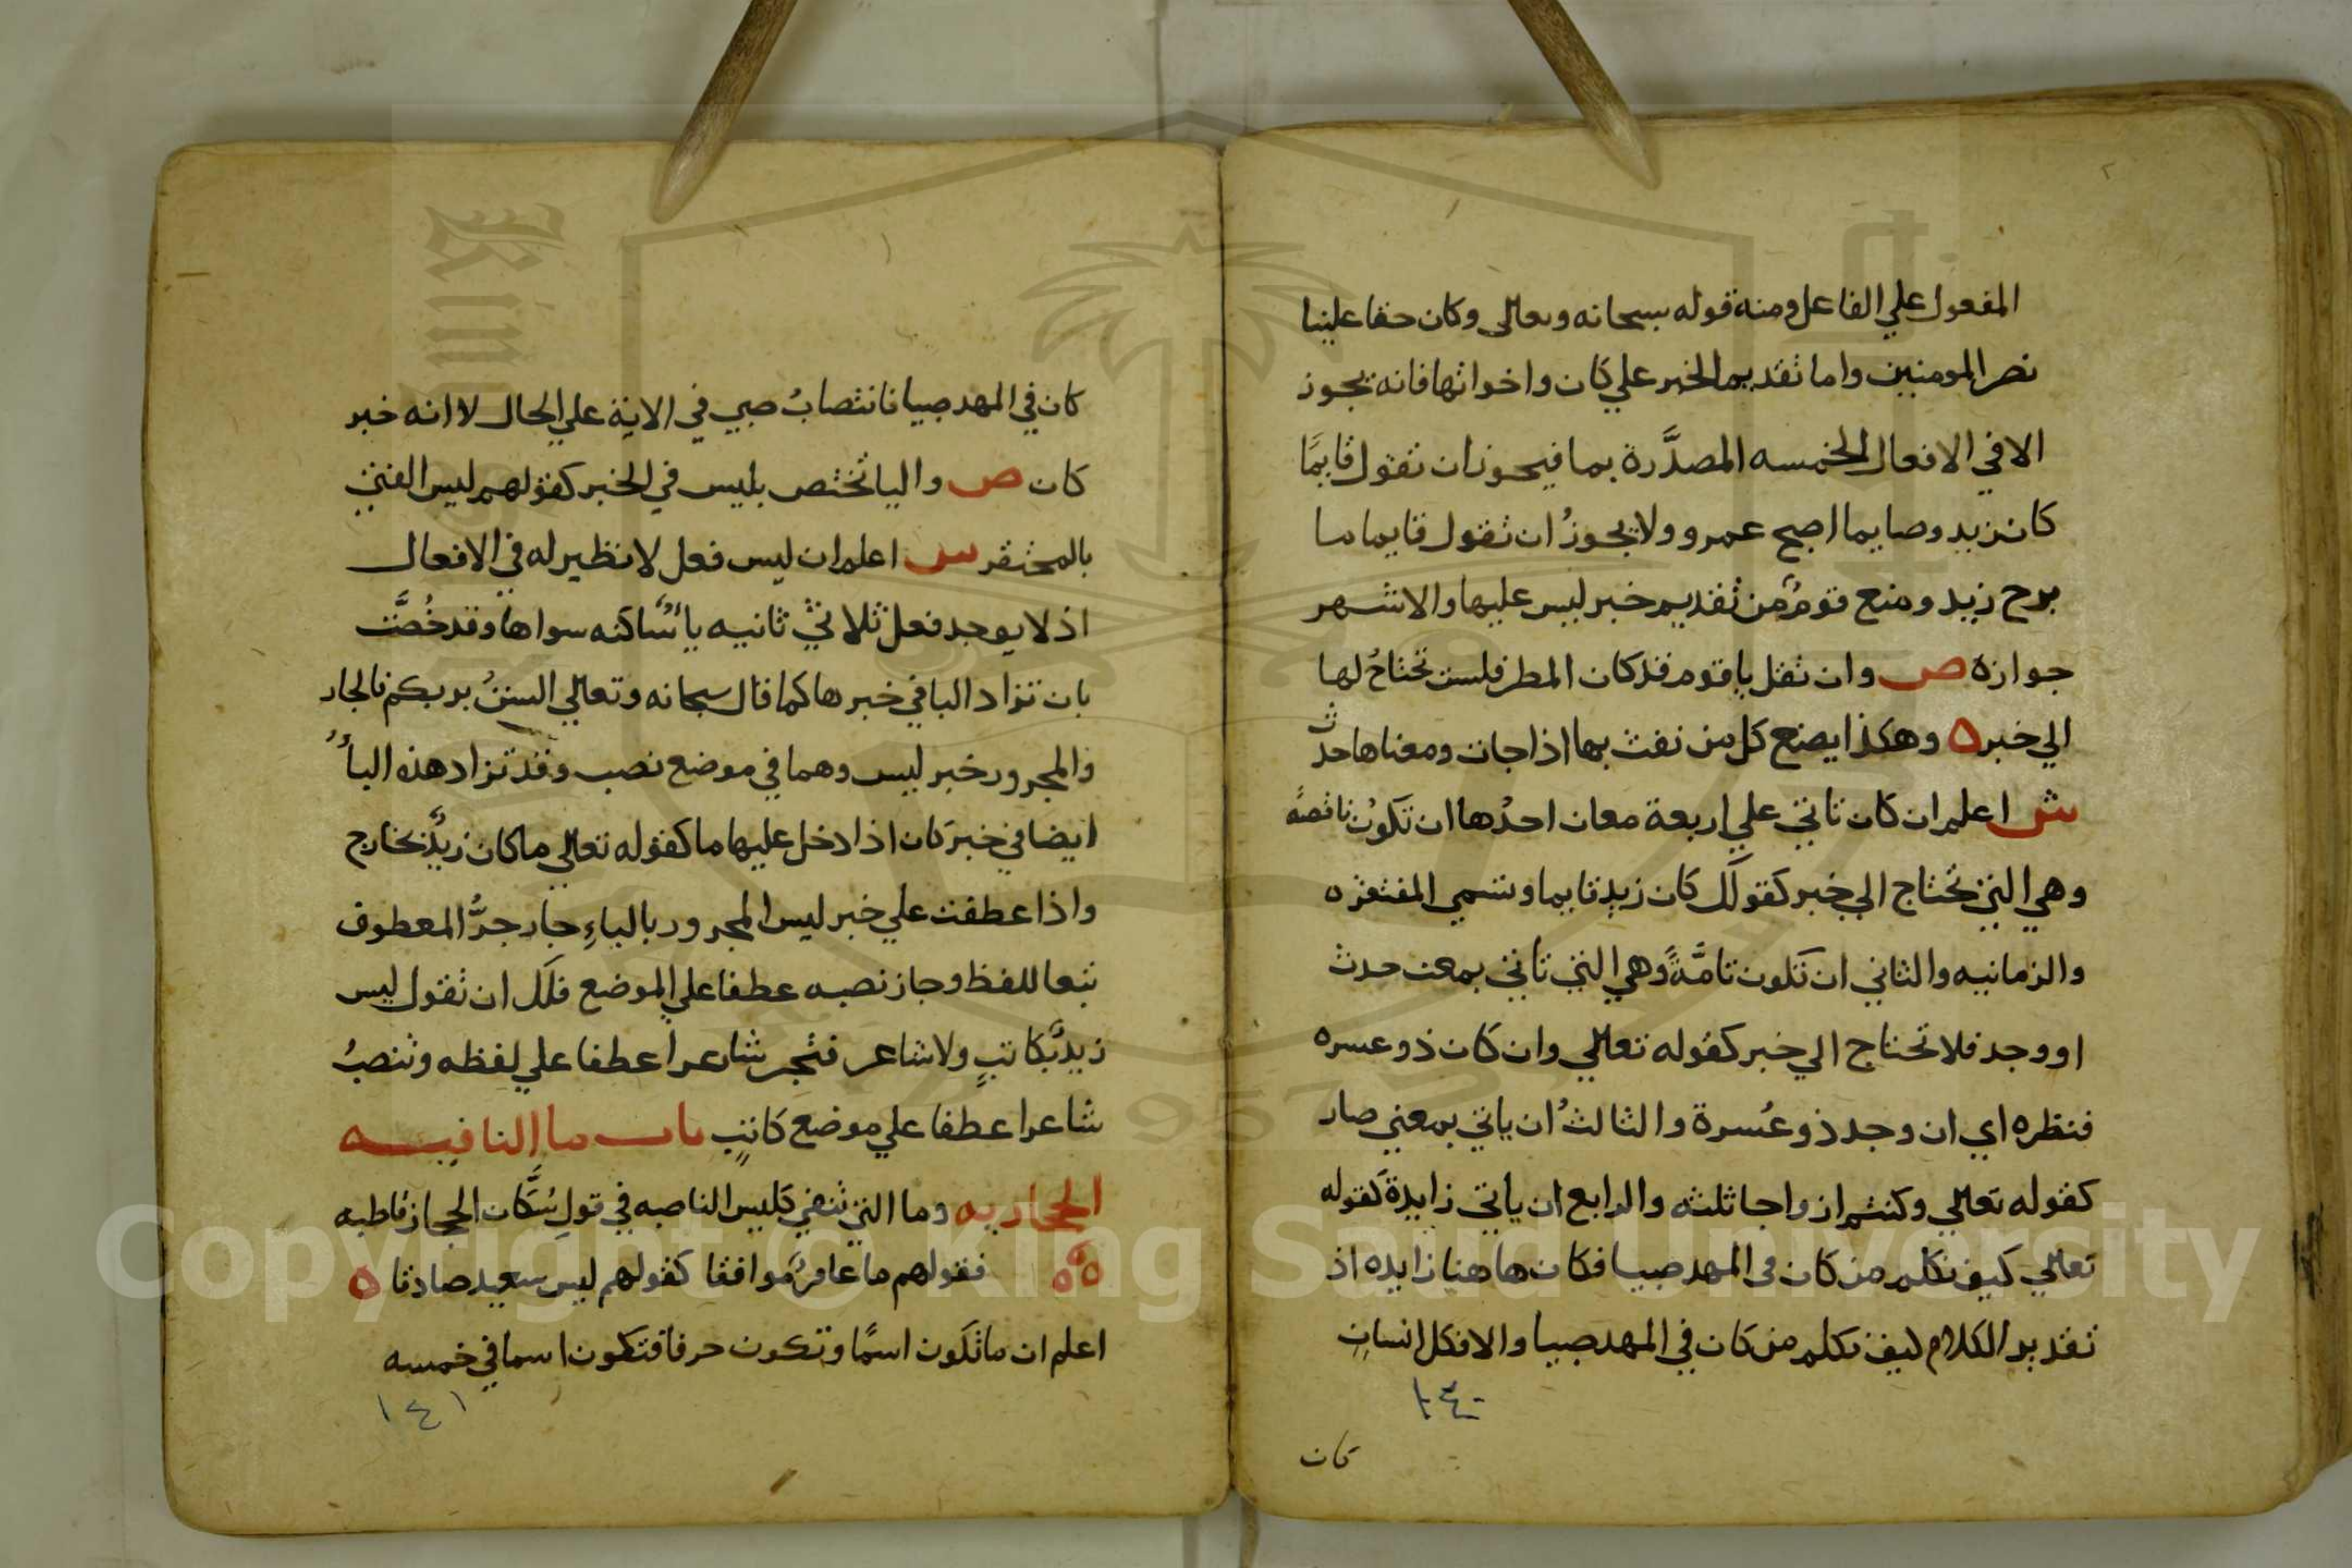 المفعول علي الفاعل ومنه قوله سبحانه وتعالي وكان حقا علينا
نصر المومنين واما تقديم الخبر علي كان واخواتها فانه يجوز
الا في الافعال الخمسه المصدَّرة بما فيجوز ان تقول قايمًا
كان زيد وصايما اصبح عمرو ولا يجوزُ ان تقول قايما ما
برح زيد ومنع قومٌ من تقديم خبر ليس عليها والاشهر
جوازه ص وان تقل يا قوم قد كان المطر فلست تحتاجُ لها
الي خبر ه وهكذا يصنع كل من نفث بها اذا جات ومعناها حدث
ش اعلم ان كان تاتي علي اربعة معان احدُها ان تكونُ ناقصةً
وهي التي تحتاج الي خبر كقولك كان زيد قايما وتسمي المفتقره
والزمانيه والثاني ان تكون تامَّةً وهي التي تاتي بمعني حدث
او وجد فلا تحتاج الي خبر كقوله تعالي وان كان ذو عسره
فنظره اي ان وجد ذو عُسرة والثالثُ ان ياتي بمعني صار
كقوله تعالي وكنتم ازواجا ثلثه والرابع ان ياتي زايدة كقوله
تعالي كيف نكلم من كان في المهد صبيا فكان هاهنا زايده اذ
تقدير الكلام كيف نكلم من كان في المهد صبيا والا فكل انسان
١٤٠
كان
كان في المهد صبيا فانتصابُ صبي في الاية علي الحال لا انه خبر
كان ص واليا تختص بليس في الخبر كقولهم ليس الفتي
بالمحتقر س اعلم ان ليس فعل لا نظير له في الافعال
اذ لا يوجد فعل ثلاثي ثانيه ياءٌ ساكنه سواها وقد خُصَّت
بان تزاد البا في خبرها كما قال سبحانه وتعالي الستُ بربكم فالجار
والمجرور خبر ليس وهما في موضع نصب وقد تزاد هذه الباءُ
ايضا في خبر كان اذا دخل عليها ما كقوله تعالي ما كان زيدٌ بخارج
واذا عطفت علي خبر ليس المجرور بالباءِ جاز جرُّ المعطوف
تبعا للفظ وجاز نصبه عطفا علي الموضع فلك ان تقول ليس
زيدٌ بكاتبٍ ولا شاعر فتجر شاعرا عطفا علي لفظه وتنصبُ
شاعرا عطفا علي موضع كاتبٍ باب ما النافيه
الحجازيه وما التي تنفي كليس الناصبه في قولِ سُكَّان الحجاز قاطبه
ه ه ه فقولهم ما عامرٌ موافقا كقولهم ليس سعيد صادقا ه
اعلم ان ما تكون اسمًا وتكون حرفا فتكون اسما في خمسه
١٤١
Copyright © King Saud University
1957